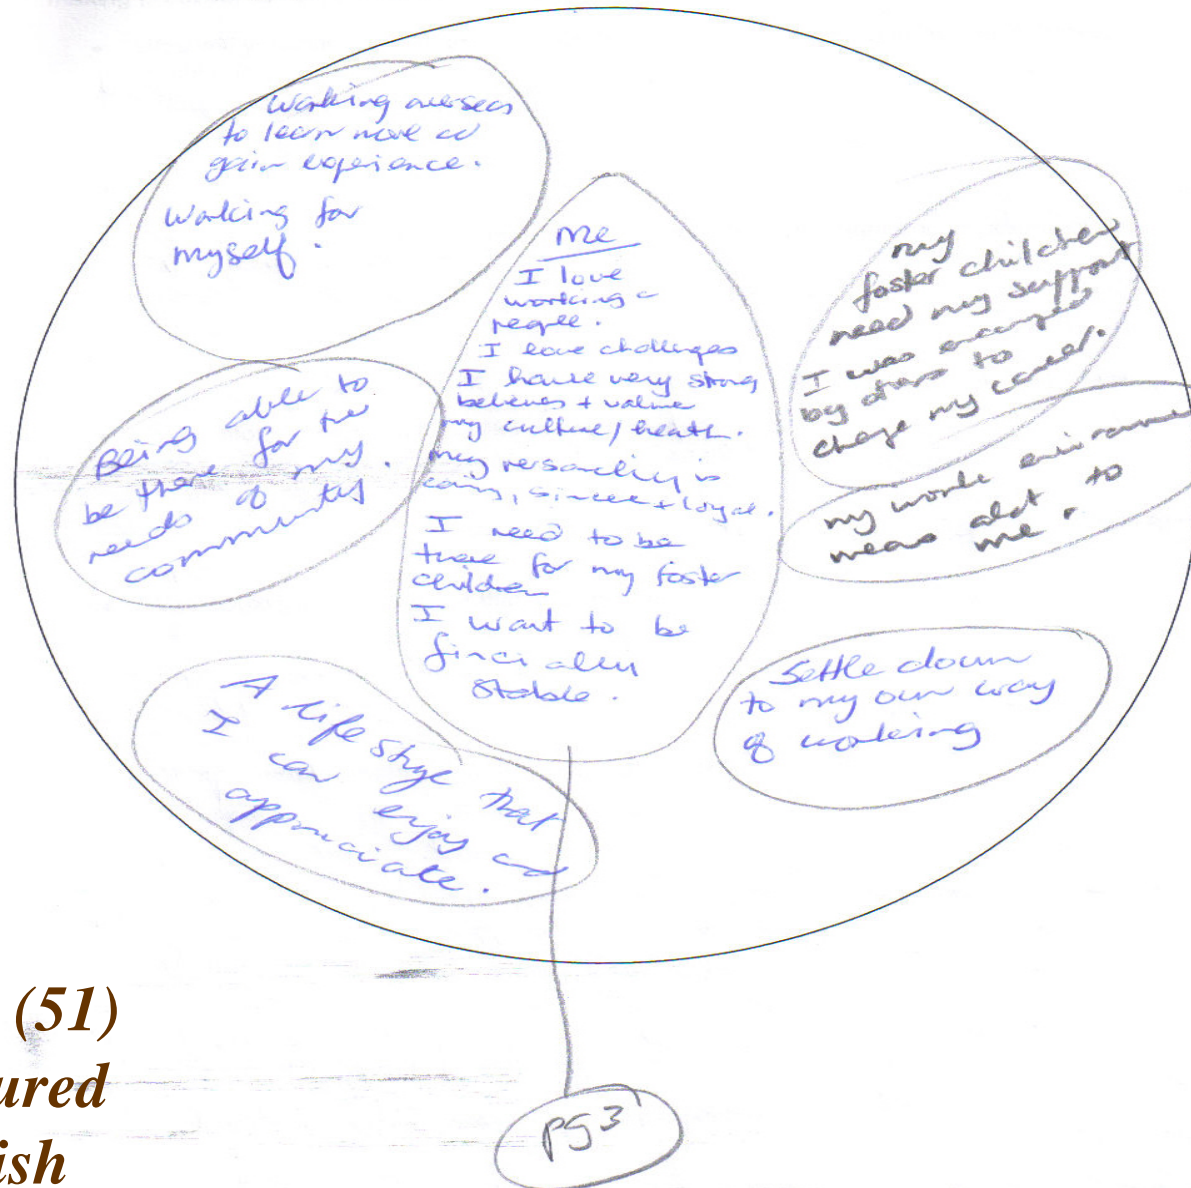 working overseas
to learn more ad
gain experience.
Working for
myself.
me
I love
working c
people.
I love challenges
I have very strong
believes + value
my culture/heath.
my personality is
caring, sincere + loyal.
I need to be
there for my foster
children
I want to be
financially
stable.
my
foster children
need my support
I was encouraged
by others to
change my career.
my work
means alot to
me.
Being able to
be there for the
needs of my
community.
A lifestyle that
I can enjoy and
appreciate.
Settle down
to my own way
of working
pg 3
(51)
ured
ish